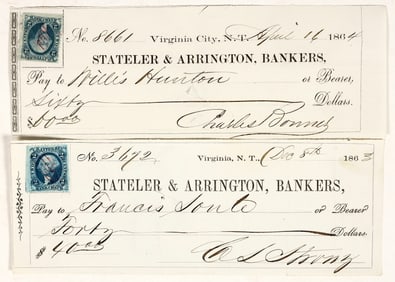 No. 8661 Virginia City, N.T. April 16 1864
STATELER & ARRINGTON, BANKERS,
Pay to Willis Hunton or Bearer,
Sixty Dollars.
Charles Bonner
No. 3672 Virginia, N. T., Dec 8th 1863
STATELER & ARRINGTON, BANKERS,
Pay to Francis or Bearer
Forty Dollars.
$ 40.00 C L Strong